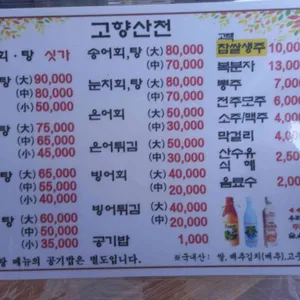 고향산천
회·탕 싯가
탕 (大) 90,000
(中) 80,000
(小) 50,000
탕 (大) 75,000
(中) 65,000
(小) 45,000
탕 (大) 65,000
(中) 55,000
(小) 40,000
탕 (大) 60,000
(中) 50,000
(小) 35,000
송어회,탕 (大) 80,000
(中) 70,000
눈치회,탕 (大) 80,000
(中) 70,000
은어회 (大) 50,000
(中) 30,000
은어튀김 (大) 50,000
(中) 30,000
빙어회 (大) 40,000
(中) 20,000
빙어튀김 (大) 40,000
(中) 20,000
공기밥 1,000
찹쌀생주 10,000
복분자 13,000
뽕주 7,000
전주모주 6,000
소주/맥주 4,000
막걸리 4,000
산수유 2,50
식혜
음료수 2,00
탕 메뉴의 공기밥은 별도입니다.
※국내산 : 쌀, 배추김치(배추), 고추